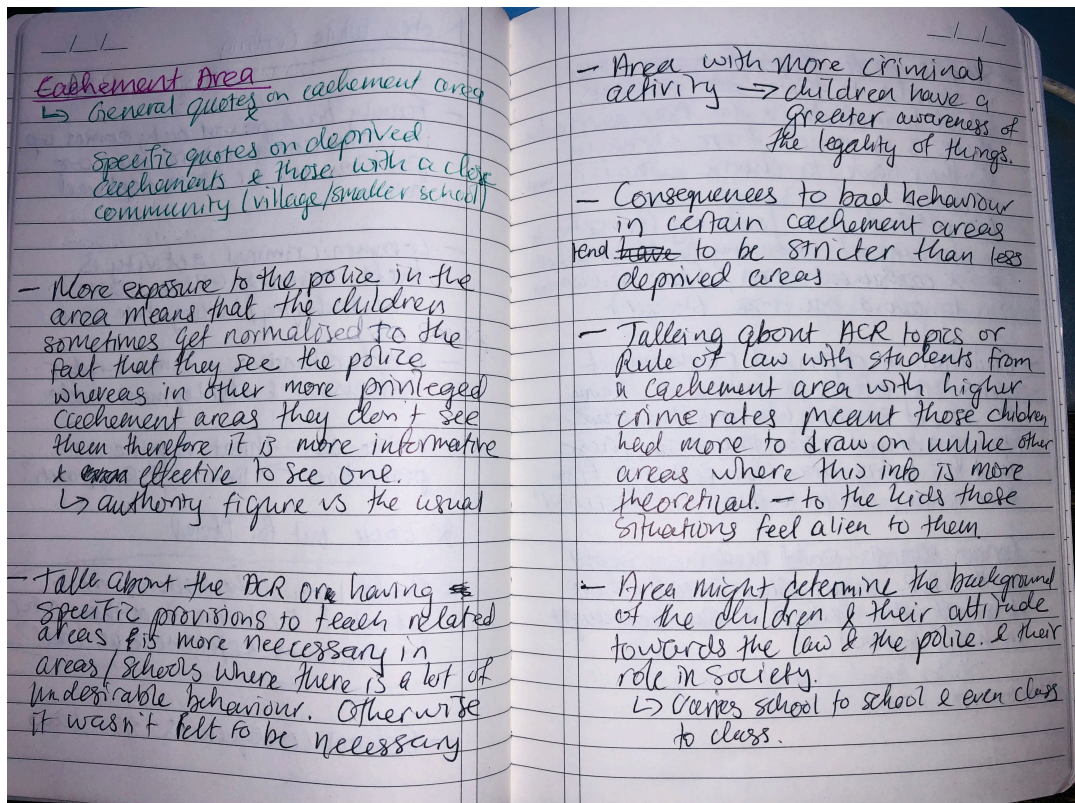 __/__/__
Cachement Area
↳ General quotes on cachement area
&
Specific quotes on deprived
cachements & those with a close
community (village/smaller school)
- More exposure to the police in the
area means that the children
sometimes get normalised to the
fact that they see the police
whereas in other more privileged
cachement areas they don't see
them therefore it is more informative
& effective to see one.
↳ authority figure vs the usual
- Talk about the ACR or having
specific provisions to teach related
areas is more neccessary in
areas/schools where there is a lot of
undesirable behaviour. Otherwise
it wasn't felt to be necessary
__/__/__
- Area with more criminal
activity → children have a
greater awareness of
the legality of things.
- Consequences to bad behaviour
in certain cachement areas
tend have to be stricter than less
deprived areas
- Talking about ACR topics or
Rule of law with students from
a cachement area with higher
crime rates meant those children
had more to draw on unlike other
areas where this info is more
theoretical. - to the kids these
situations feel alien to them.
- Area might determine the background
of the children & their attitude
towards the law & the police. & their
role in society.
↳ Varies school to school & even class
to class.